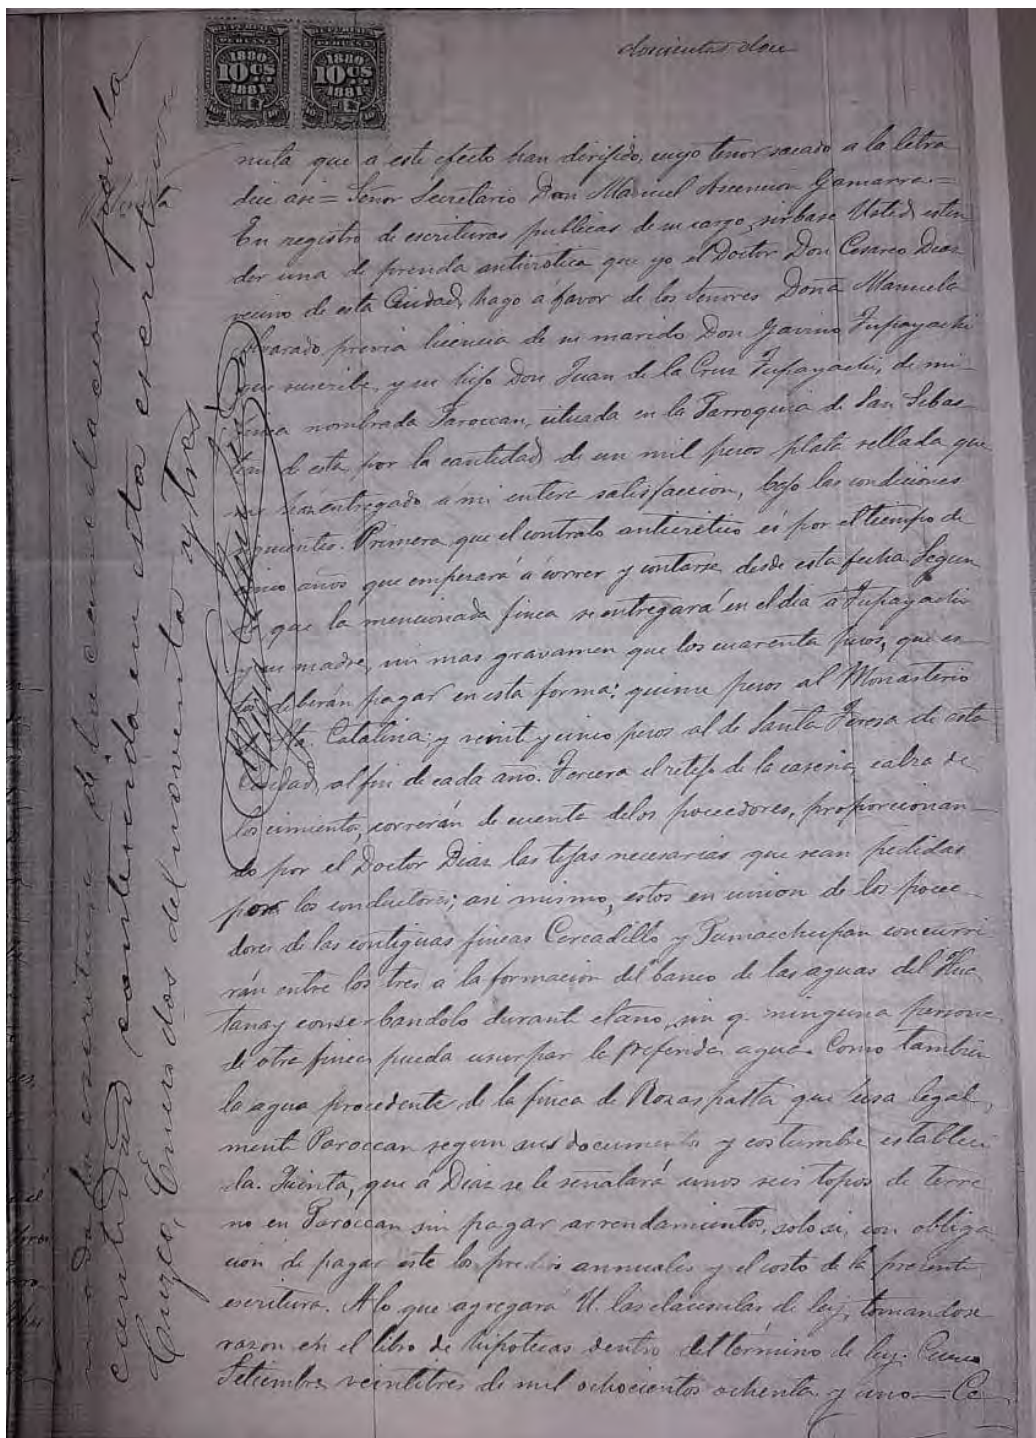 1880
10 CS
1881
1880
10 CS
1881
doscientos doce
nuta que á este efecto han dirijido, cuyo tenor sacado a la letra
dice asi = Señor Secretario Don Manuel Ascencion Gamarra. =
En registro de escrituras publicas de su cargo, sirbase Usted esten
der una de prenda anticrética que yo el Doctor Don Cesareo Diaz
vecino de esta Ciudad, hago á favor de los Señores Doña Manuela
Alvarado, previa licencia de su marido Don Gavino Tupayachi
que suscribe, y su hijo Don Juan de la Cruz Tupayachi, de mi
finca nombrada Paroccan, situada en la Parroquia de San Sebas
tian de esta por la cantidad de un mil pesos plata sellada que
me han entregado a mi entera satisfaccion, bajo las condiciones
siguientes. Primera que el contrato anticretico es por el tiempo de
cinco años que empesará á correr y contarse desde esta fecha. Segun
da que la mencionada finca se entregará en el dia á Tupayachi
y su madre, sin mas gravamen que los cuarenta pesos, que es
tos deberán pagar en esta forma: quince pesos al Monasterio
Sta. Catalina; y veint y cinco pesos al de Santa Teresa de esta
Ciudad, al fin de cada año. Tercera el retejo de la caseria, calza de
los cimientos, correrán de cuenta delos poceedores, proporcionan
do por el Doctor Diaz las tejas necesarias que sean pedidas
por los conductores; asi mismo, estos en union de los pocee
dores de las contiguas fincas Cercadillo y Pumacchupan concurri
rán entre los tres á la formacion del banco de las aguas del Hua
tanay conserbandolo durante el año, sin q. ninguna persona
de otra finca pueda usurpar la referida agua. Como tambien
la agua procedente de la finca de Rozaspatta que usa legal
mente Paroccan segun sus documentos y costumbre estableci
da. Quinta, que á Diaz se le señalará unos seis topos de terre
no en Paroccan sin pagar arrendamientos, solo si, con obliga
cion de pagar este los predios annuales y el costo de la presente
escritura. A lo que agregará U. las clausulas de ley, tomandose
razon en el libro de hipotecas dentro del término de ley. Cuzco
Setiembre veintitres de mil ochocientos ochenta y uno = Ce
la escritura de la cancelacion por la
cantidad contenida en esta escritura
Cuzco, Enero dos del noventa y tres